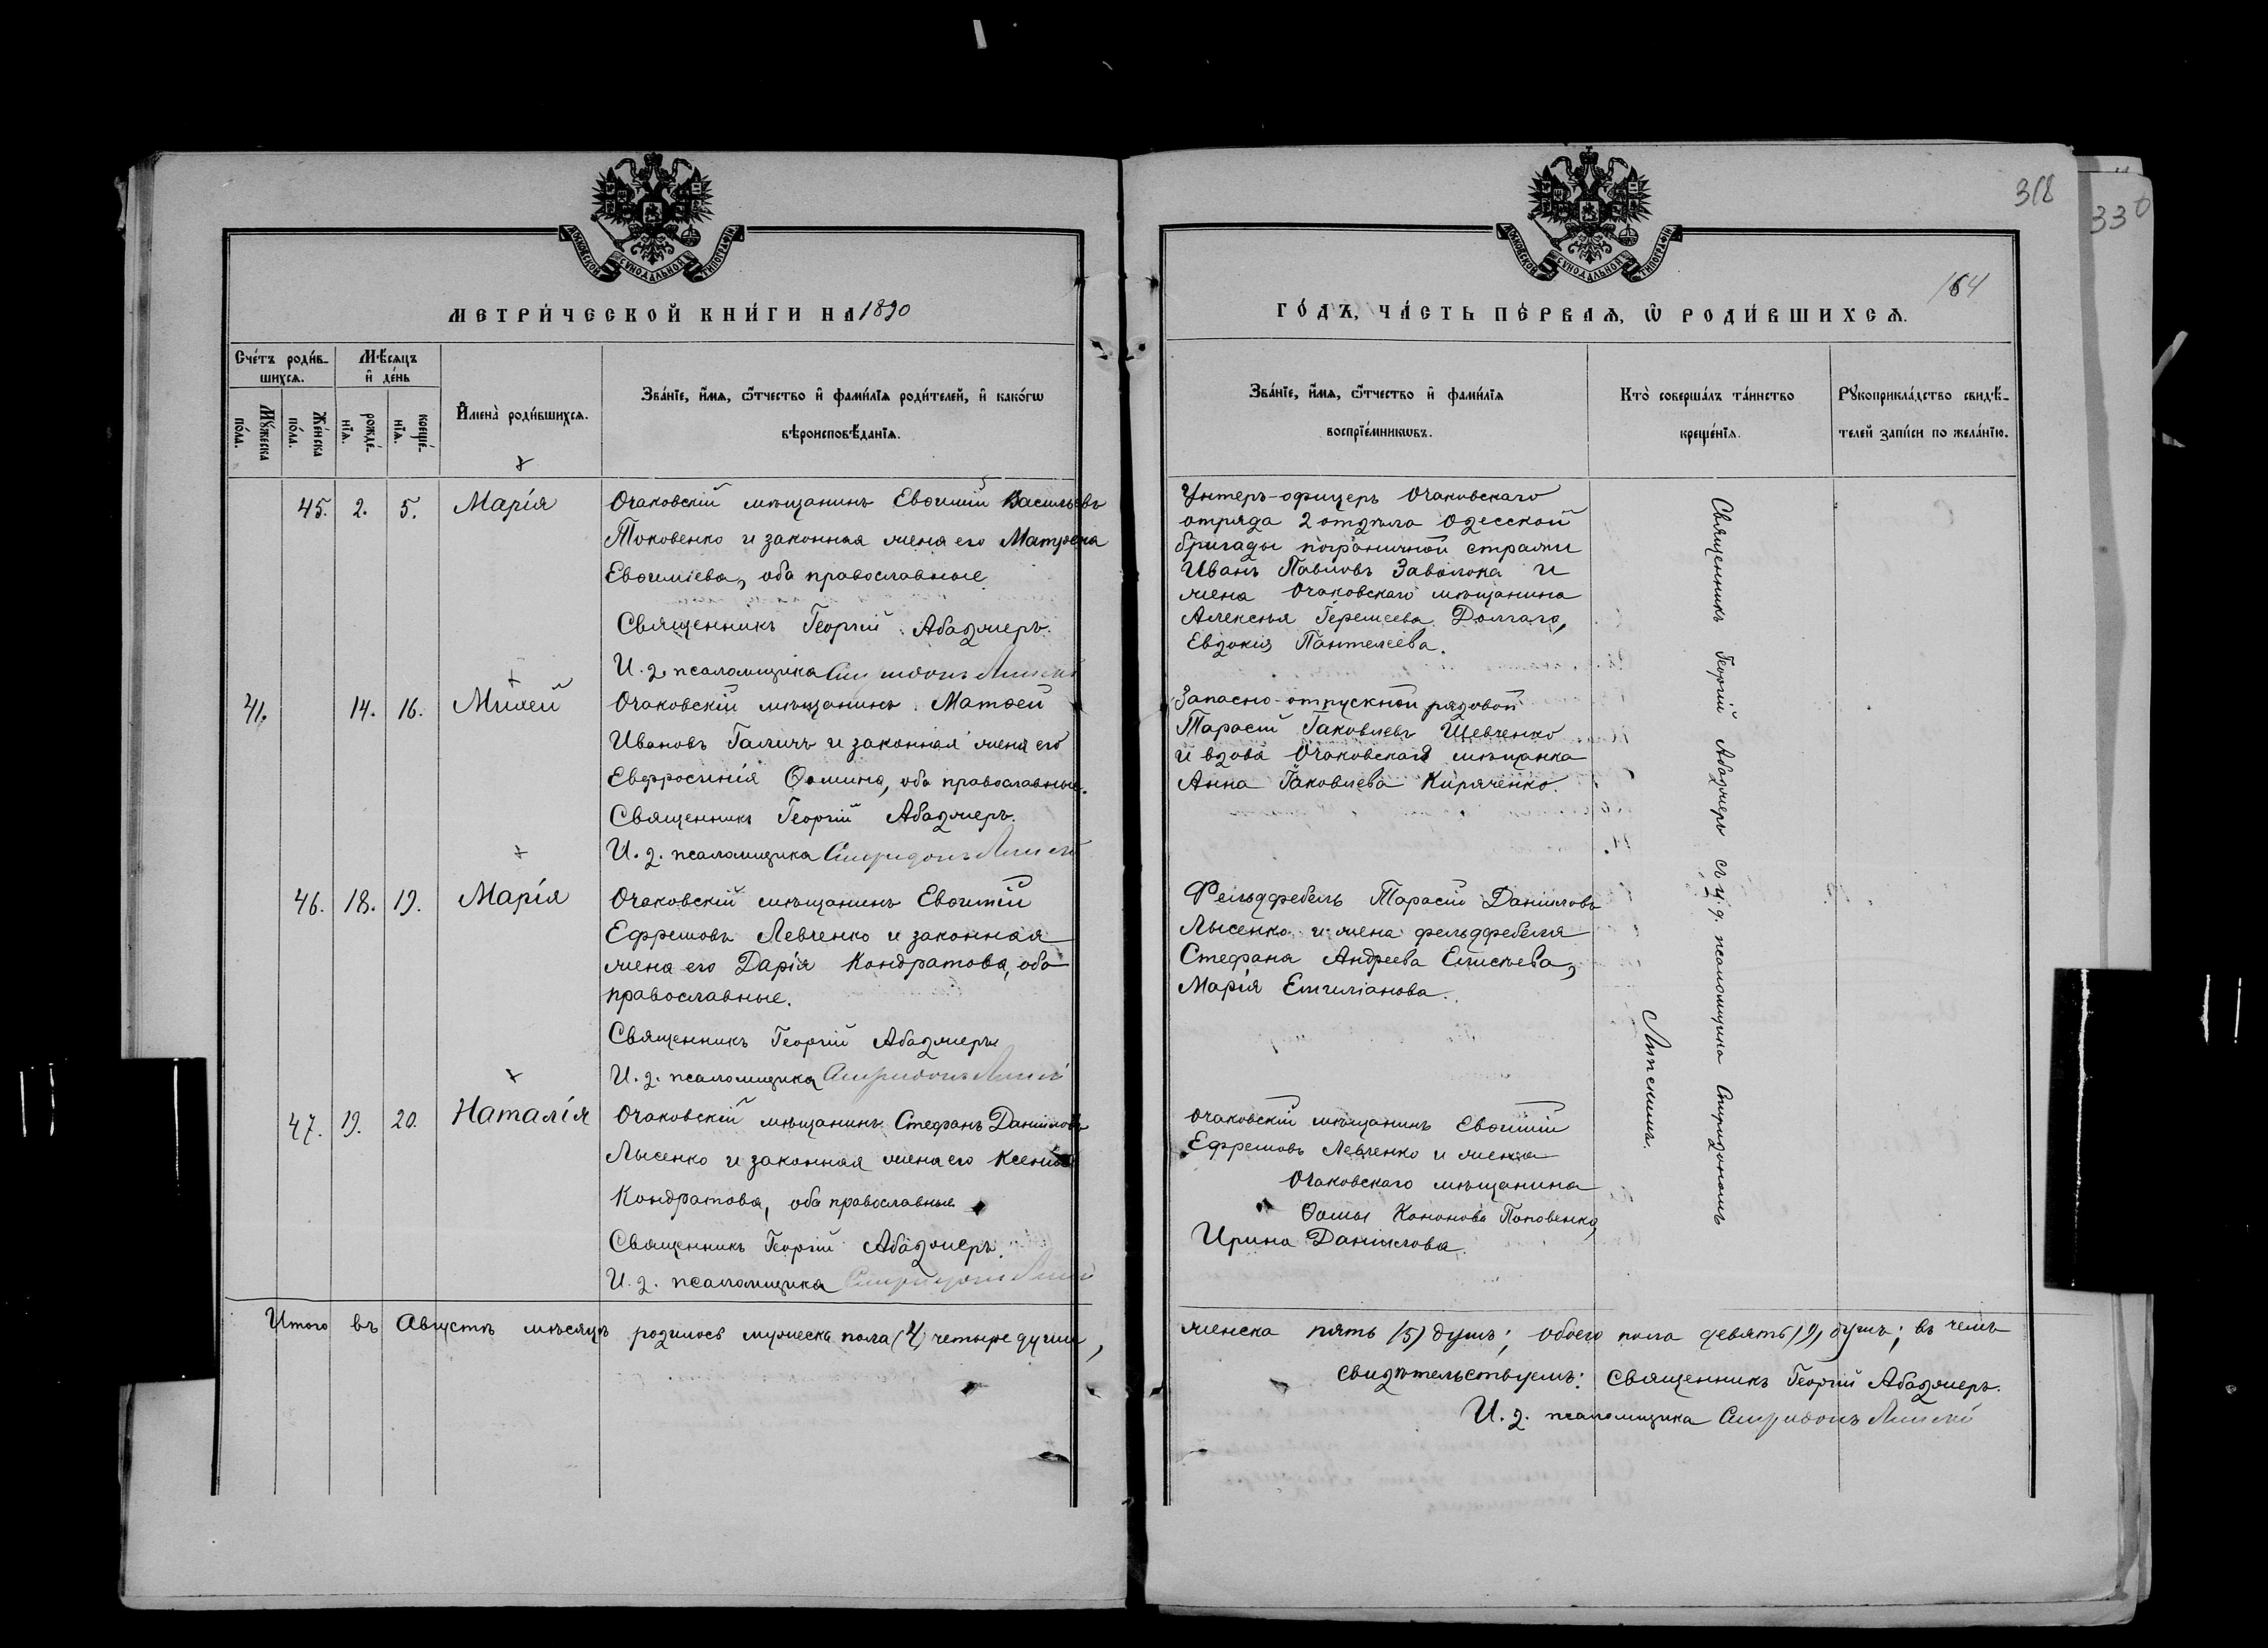 318
330
164
МОСКОВСКОЙ СѴНОДАЛЬНОЙ ТИПОГРАФІИ
МОСКОВСКОЙ СѴНОДАЛЬНОЙ ТИПОГРАФІИ
МЕТРИ́ЧЕСКОЙ КНИ́ГИ НА 1890
ГО́ДЪ, ЧА́СТЬ ПЕ́РВАѦ, Ѡ҆ РОДИ́ВШИХСѦ.
Сче́тъ роди́в-
шихсѧ.
Мѣ́сѧцъ
и҆ де́нь
Мꙋ́жеска
по́ла.
Же́нска
по́ла.
рожде́-
нїѧ.
креще́-
нїѧ.
И҆мена̀ роди́вшихсѧ.
Зва́нїе, и҆́мѧ, ѻ҆́тчество и҆ фами́лїѧ роди́телей, и҆ како́гѡ
вѣроисповѣ́данїѧ.
Зва́нїе, и҆́мѧ, ѻ҆́тчество и҆ фами́лїѧ
воспрїе́мникѡвъ.
Кто̀ соверша́лъ та́инство
креще́нїѧ.
Рꙋкоприкла́дство свидѣ́-
телей за́писи по жела́нїю.
45. 2. 5. Марія
Очаковскій мѣщанинъ Евѳимій Васильевъ
Токовенко и законная жена его Матрона
Евѳиміева, оба православные
Священникъ Георгій Абаджеръ.
И. д. псаломщика Спиридонъ Липскій
Унтеръ-офицеръ Очаковскаго
отряда 2 отдѣла Одесской
бригады пограничной стражи
Иванъ Павловъ Заволока и
жена Очаковскаго мѣщанина
Алексѣя Геремеева Долгаго,
Евдокія Пантелеева.
41. 14. 16. Михей
Очаковскій мѣщанинъ Матѳей
Ивановъ Галичъ и законная жена его
Евфросинія Ѳомина, оба православные.
Священникъ Георгій Абаджеръ.
И. д. псаломщика Спиридонъ Липскій
Запасно-отпускной рядовой
Тарасій Іаковлевъ Шевченко
и вдова Очаковская мѣщанка
Анна Іаковлева Киряченко.
46. 18. 19. Марія
Очаковскій мѣщанинъ Евѳимій
Ефремовъ Левченко и законная
жена его Дарія Кондратова, оба
православные.
Священникъ Георгій Абаджеръ
И. д. псаломщика Спиридонъ Липскій
Фельдфебель Тарасій Даниловъ
Лысенко и жена фельдфебеля
Стефана Андреева Елисѣева,
Марія Емиліанова.
47. 19. 20. Наталія
Очаковскій мѣщанинъ Стефанъ Даниловъ
Лысенко и законная жена его Ксенія
Кондратова, оба православные
Священникъ Георгій Абаджеръ.
И. д. псаломщика Спиридонъ Липскій
Очаковскій мѣщанинъ Евѳимій
Ефремовъ Левченко и жена
Очаковскаго мѣщанина
Ѳомы Кононова Поповенко,
Ирина Данилова.
Священникъ Георгій Абаджеръ съ и. д. псаломщика Спиридономъ
Липскимъ.
Итого въ Августѣ мѣсяцѣ родилось мужеска пола (4) четыре души,
женска пять (5) душъ; обоего пола девять (9) душъ; въ чемъ
свидѣтельствуемъ: Священникъ Георгій Абаджеръ.
И. д. псаломщика Спиридонъ Липскій